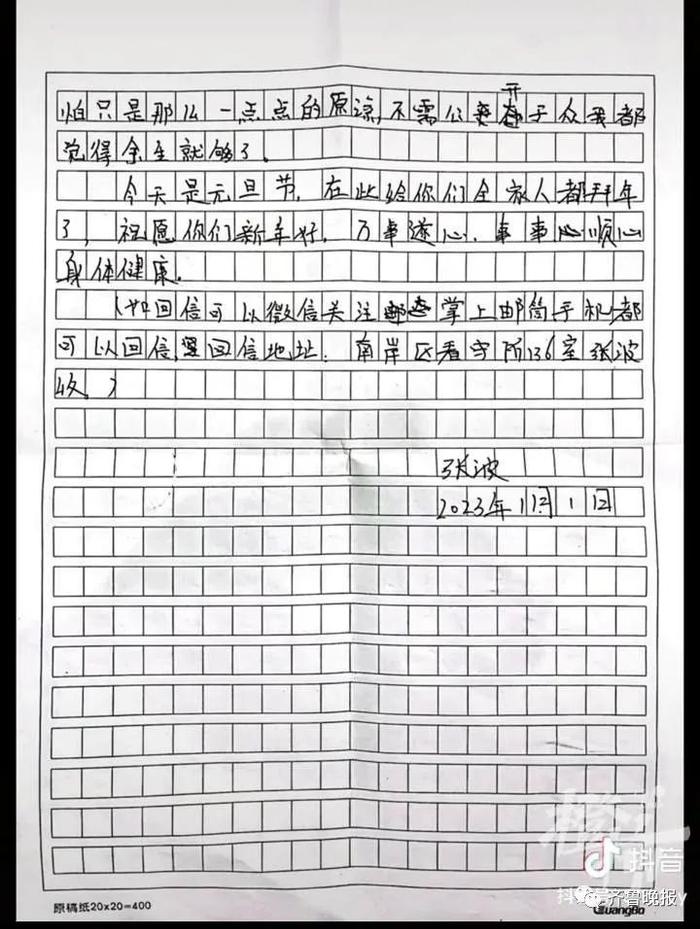 怕只是那么一点点的原谅,不需公开于众我都
觉得余生就够了。
今天是元旦节,在此给你们全家人都拜年
了,祝愿你们新年好,万事遂心,事事顺心
身体健康。
(如回信可以微信关注掌上邮筒手机都
可以回信,回信地址:南岸区看守所136室张波
收。)
张波
2023年1月1日
原稿纸20x20=400
抖音
齐鲁晚报
GuangBo